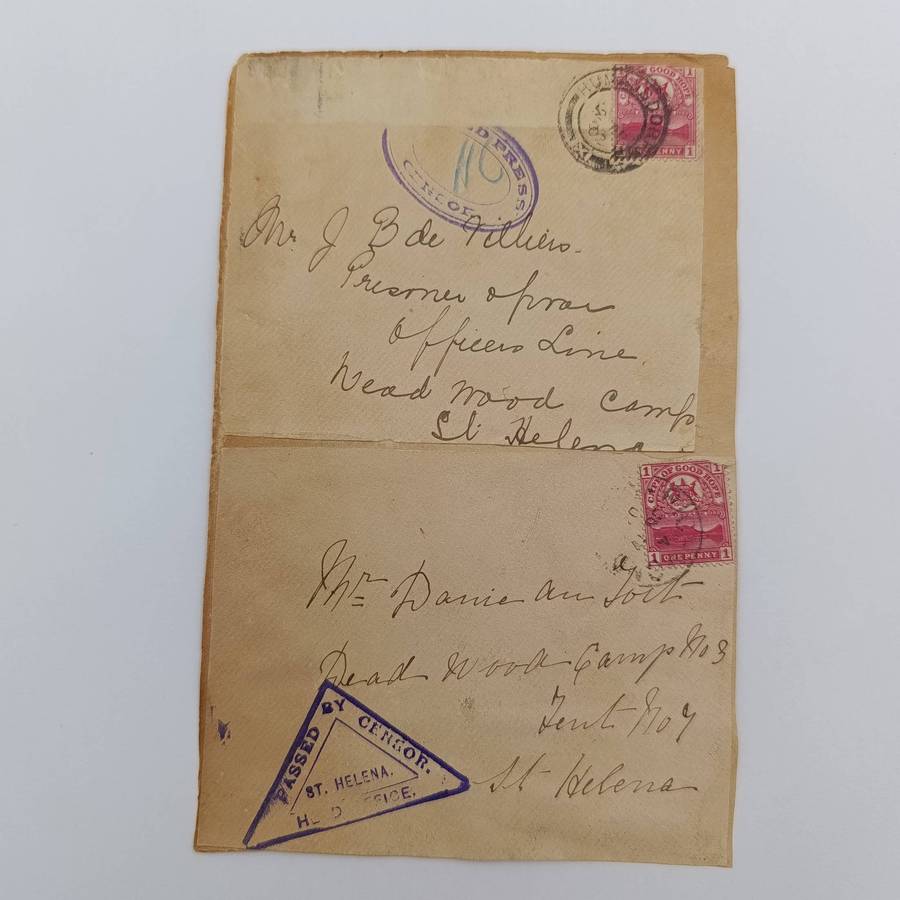 GOOD HOPE
1
1
PENNY
PRESS
Mr J B de Villiers.
Prisoner of war
Officers Line
Dead Wood Camp
St. Helena
1 1
CAPE OF GOOD HOPE
1 ONE PENNY 1
Mr Danie
Dead Wood Camp No 3
Tent No 7
St Helena
PASSED BY CENSOR.
ST. HELENA.